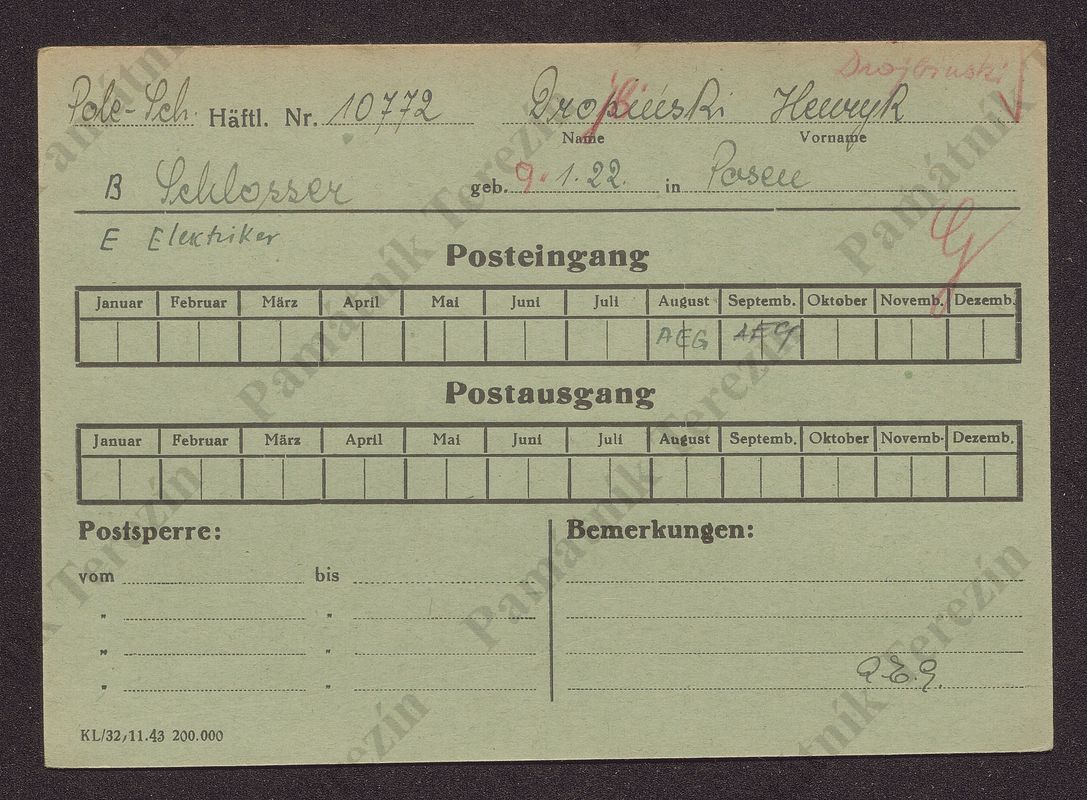 Drojbinski
Pole-Sch. Häftl. Nr. 10772 Henryk
Name Vorname
B Schlosser geb. 9. 1. 22. in Posen
E Elektriker
Posteingang
Januar Februar März April Mai Juni Juli August Septemb. Oktober Novemb. Dezemb.
AEG AEG
Postausgang
Januar Februar März April Mai Juni Juli August Septemb. Oktober Novemb. Dezemb.
Postsperre: Bemerkungen:
vom bis
" "
" "
A.E.G.
" "
KL/32/11.43 200.000
Památník Terezín